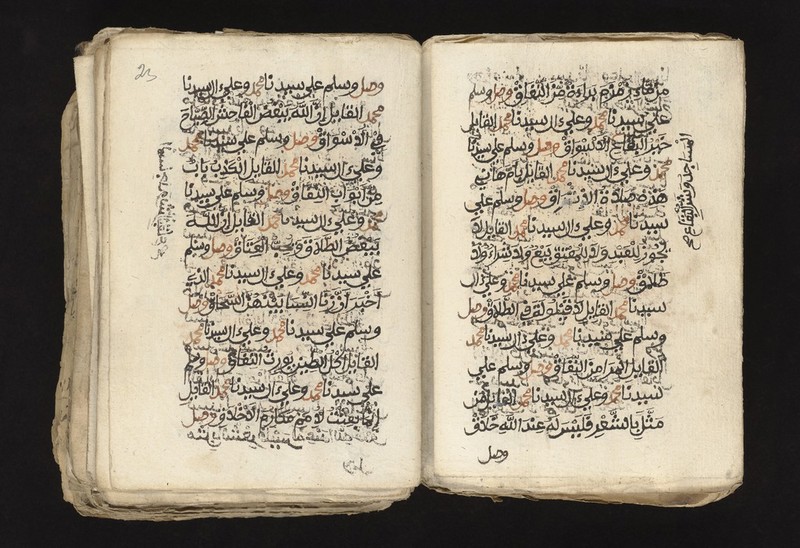 براءة من النفاق وصل وسلم
على سيدنا محمد وعلى ال سيدنا محمد القايل
خير البقاع الاسواق وصل وسلم على سيدنا
محمد وعلى ال سيدنا محمد القايل يام هانى
هذه صلاة الاشراق وصل وسلم على
سيدنا محمد وعلى ال سيدنا محمد القايل لا
يجوز للعبد ولا بيع ولا شراء ولا
طلاق وصل وسلم على سيدنا محمد وعلى ال
سيدنا محمد القايل لا قيلولة في الطلاق وصل
وسلم على سيدنا محمد وعلى ال سيدنا محمد
القايل المرا من النفاق وصل وسلم على
سيدنا محمد وعلى ال سيدنا محمد القايل من
مثل بالشعر فليس له عند الله خلاق
وصل
المساجد وشر البقاع صح
23
وصل وسلم على سيدنا محمد وعلى ال سيدنا
محمد القايل ان الله يبغض الفاحش الصياح
في الاسواق وصل وسلم على سيدنا محمد
وعلى ال سيدنا محمد القايل الكذب باب
من ابواب النفاق وصل وسلم على سيدنا
محمد وعلى ال سيدنا محمد القايل ان الله
يبغض الطلاق ويحب العتاق وصل وسلم
على سيدنا محمد وعلى ال سيدنا محمد الذي
اخبر ان زنا النسا بينهن السحاق وصل
وسلم على سيدنا محمد وعلى ال سيدنا محمد
القايل اكل الطين يورث النفاق وصل وسلم
على سيدنا محمد وعلى ال سيدنا محمد القايل
انما بعثت لاتمم مكارم الاخلاق وصل